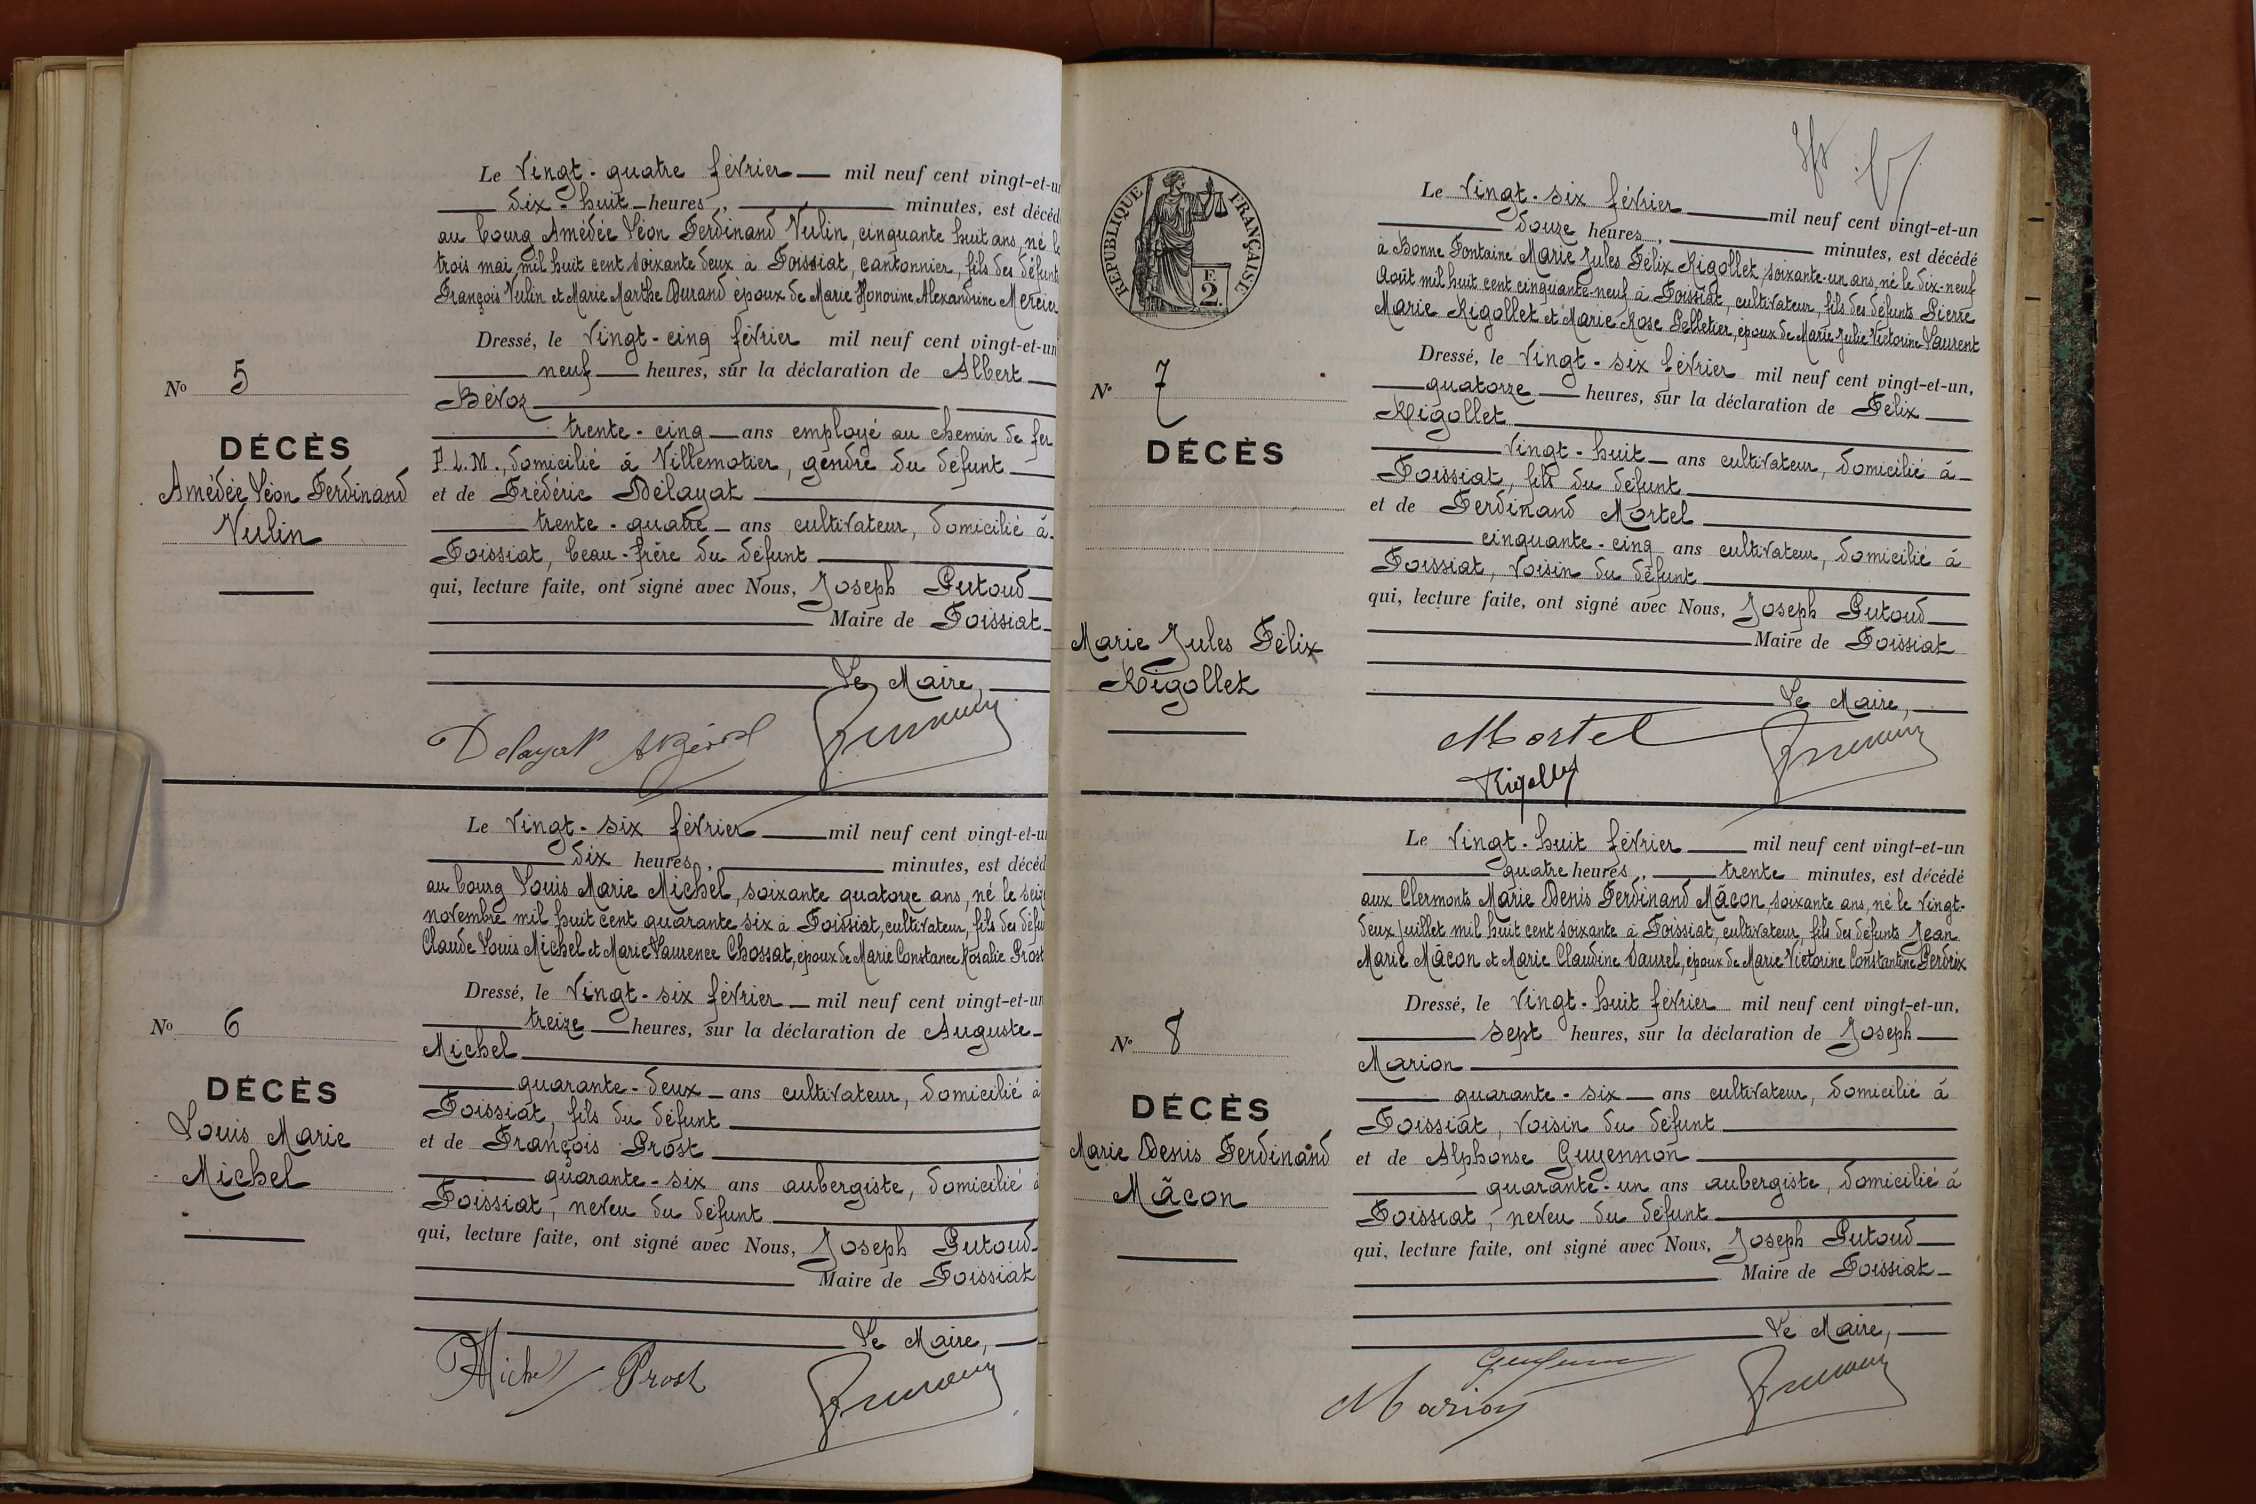 Le vingt-quatre février mil neuf cent vingt-et-u
dix-huit heures, minutes, est décéd
au bourg Amédée Léon Ferdinand Vulin, cinquante huit ans, né le
trois mai mil huit cent soixante deux à Foissiat, cantonnier, fils des défunts
François Vulin et Marie Marthe Durand époux de Marie Honorine Alexandrine Mercier
Dressé, le vingt-cinq février mil neuf cent vingt-et-un
neuf heures, sur la déclaration de Albert
Bévoz
trente-cinq ans employé au chemin de fer
P.L.M., domicilié à Villemotier, gendre du défunt
et de Frédéric Délayat
trente-quatre ans cultivateur, domicilié à
Foissiat, beau-frère du défunt
qui, lecture faite, ont signé avec Nous, Joseph Putoud
Maire de Foissiat
Le Maire,
Delayat
No 5
DÉCÈS
Amédée Léon Ferdinand
Vulin
Le vingt-six février mil neuf cent vingt-et-u
dix heures, minutes, est décéd
au bourg Louis Marie Michel, soixante quatorze ans, né le seize
novembre mil huit cent quarante six à Foissiat, cultivateur, fils des défu
Claude Louis Michel et Marie Laurence Chossat, époux de Marie Constance Rosalie Prost
Dressé, le vingt-six février mil neuf cent vingt-et-un
treize heures, sur la déclaration de Auguste
Michel
quarante-deux ans cultivateur, domicilié à
Foissiat, fils du défunt
et de François Prost
quarante-six ans aubergiste, domicilié à
Foissiat, neveu du défunt
qui, lecture faite, ont signé avec Nous, Joseph Putoud
Maire de Foissiat
Le Maire,
Michel Prost
No 6
DÉCÈS
Louis Marie
Michel
RÉPUBLIQUE FRANÇAISE
F.
2.
Le vingt-six février mil neuf cent vingt-et-un
douze heures, minutes, est décédé
à Bonne Fontaine Marie Jules Félix Rigollet soixante-un ans, né le dix-neuf
Août mil huit cent cinquante-neuf à Foissiat, cultivateur, fils des défunts Pierre
Marie Rigollet et Marie Rose Pelletier, époux de Marie Julie Victorine Laurent
Dressé, le vingt-six février mil neuf cent vingt-et-un,
quatorze heures, sur la déclaration de Félix
Rigollet
vingt-huit ans cultivateur, domicilié à
Foissiat, fils du défunt
et de Ferdinand Mortel
cinquante-cinq ans cultivateur, domicilié à
Foissiat, voisin du défunt
qui, lecture faite, ont signé avec Nous, Joseph Putoud
Maire de Foissiat
Le Maire,
Mortel
Rigollet
No 7
DÉCÈS
Marie Jules Félix
Rigollet
Le vingt-huit février mil neuf cent vingt-et-un
quatre heures, trente minutes, est décédé
aux Clermonts Marie Denis Ferdinand Mâcon, soixante ans, né le vingt-
deux juillet mil huit cent soixante à Foissiat, cultivateur, fils des défunts Jean
Marie Mâcon et Marie Claudine Daurel, époux de Marie Victorine Constantine Perdrix
Dressé, le vingt-huit février mil neuf cent vingt-et-un,
sept heures, sur la déclaration de Joseph
Marion
quarante-six ans cultivateur, domicilié à
Foissiat, voisin du défunt
et de Alphonse Guyennon
quarante-un ans aubergiste, domicilié à
Foissiat, neveu du défunt
qui, lecture faite, ont signé avec Nous, Joseph Putoud
Maire de Foissiat
Le Maire,
Marion
No 8
DÉCÈS
Marie Denis Ferdinand
Mâcon